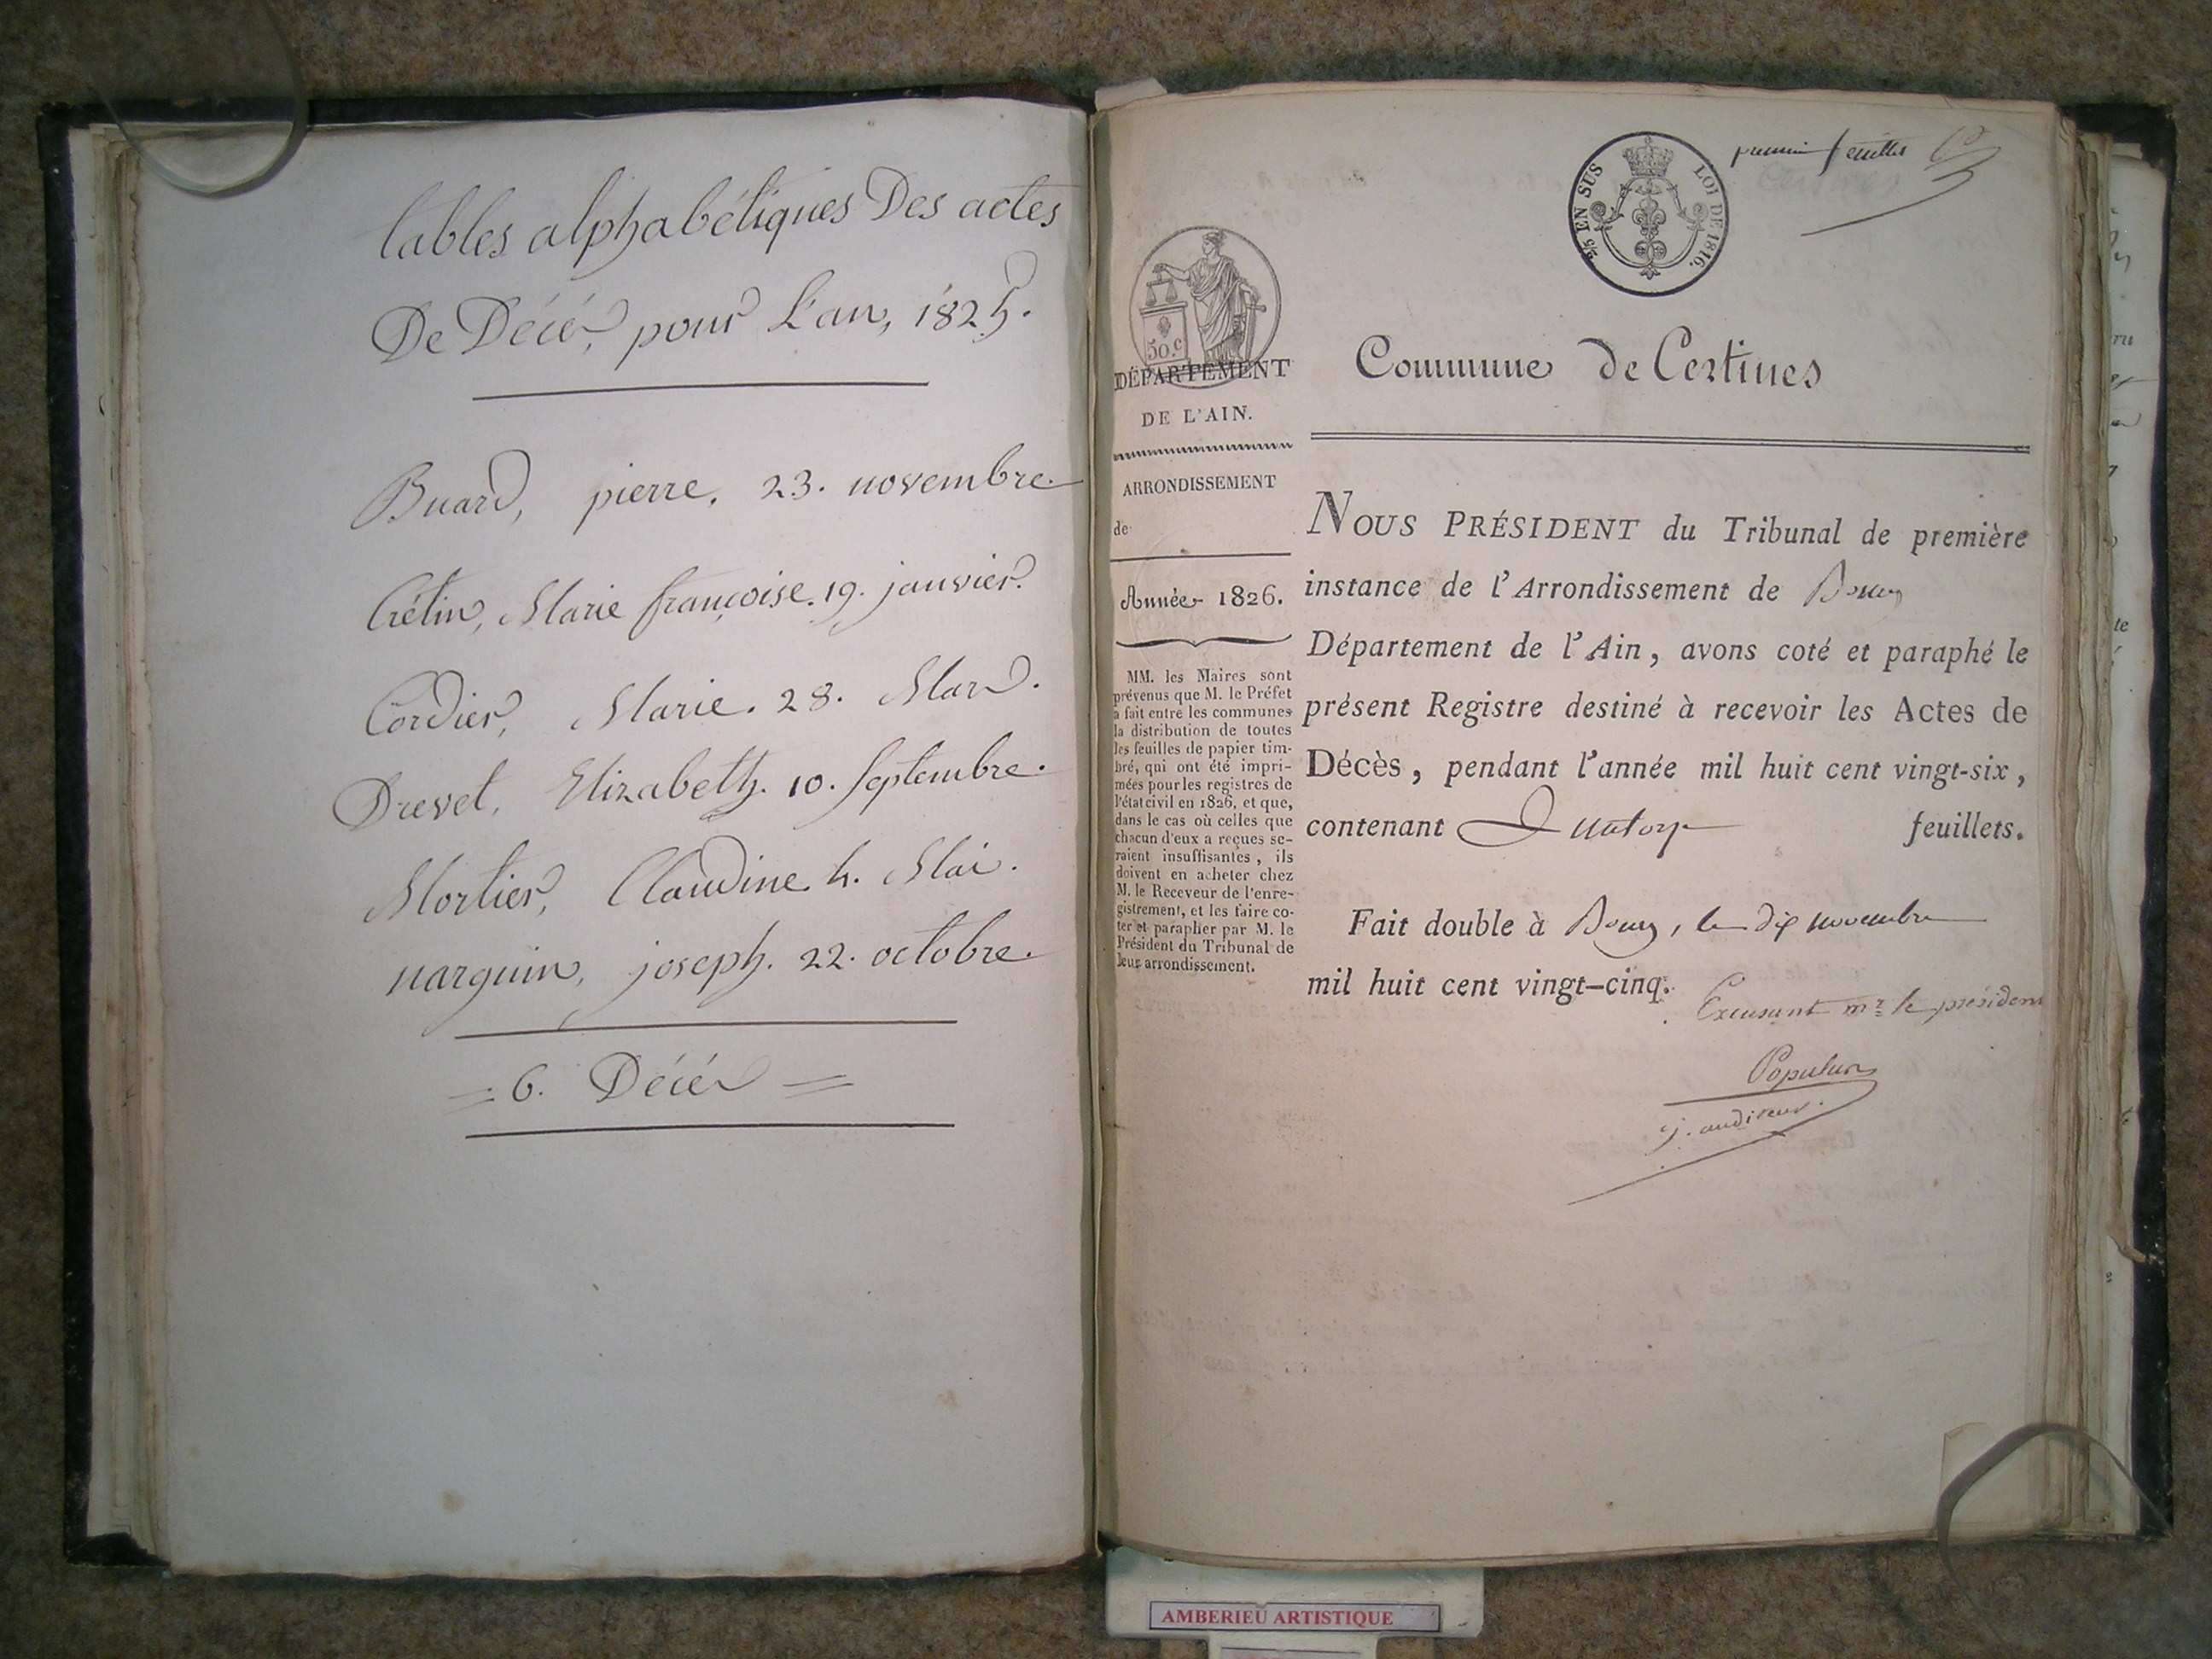 tables alphabétiques Des actes
De Décés, pour L'an, 1825.
Buard, pierre. 23. novembre.
Crétin, Marie françoise. 19. janvier.
Cordier, Marie. 28. Mars.
Drevet, Elizabeth. 10. Septembre.
Mortier, Claudine. 4. Mai.
narguin, joseph. 22. octobre.
= 6. Décés =
premier feuillet
2/5 EN SUS LOI DE 1816.
50.c
DÉPARTEMENT
DE L'AIN.
ARRONDISSEMENT
de
Année 1826.
MM. les Maires sont
prévenus que M. le Préfet
a fait entre les communes
la distribution de toutes
les feuilles de papier tim-
bré, qui ont été impri-
mées pour les registres de
l'état civil en 1826, et que,
dans le cas où celles que
chacun d'eux a reçues se-
raient insuffisantes, ils
doivent en acheter chez
M. le Receveur de l'enre-
gistrement, et les faire co-
ter et parapher par M. le
Président du Tribunal de
leur arrondissement.
Commune de Certines
NOUS PRÉSIDENT du Tribunal de première
instance de l'Arrondissement de Bourg
Département de l'Ain, avons coté et paraphé le
présent Registre destiné à recevoir les Actes de
Décès, pendant l'année mil huit cent vingt-six,
contenant Quatorze feuillets.
Fait double à Bourg, le dix novembre
mil huit cent vingt-cinq.
Excusant mr le président
Populus
j. auditeur.
AMBERIEU ARTISTIQUE